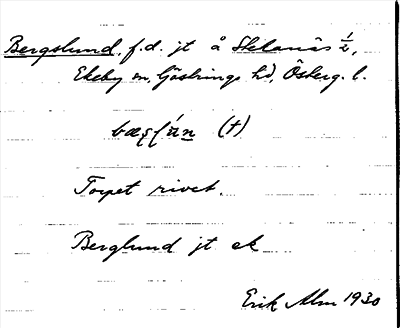 Bergslund, f.d. jt å Skelanäs ½,
Ekeby sn, Göstrings hd, Österg. l.
(+)
Torpet rivet.
Berglund jt ek
Erik Alm 1930